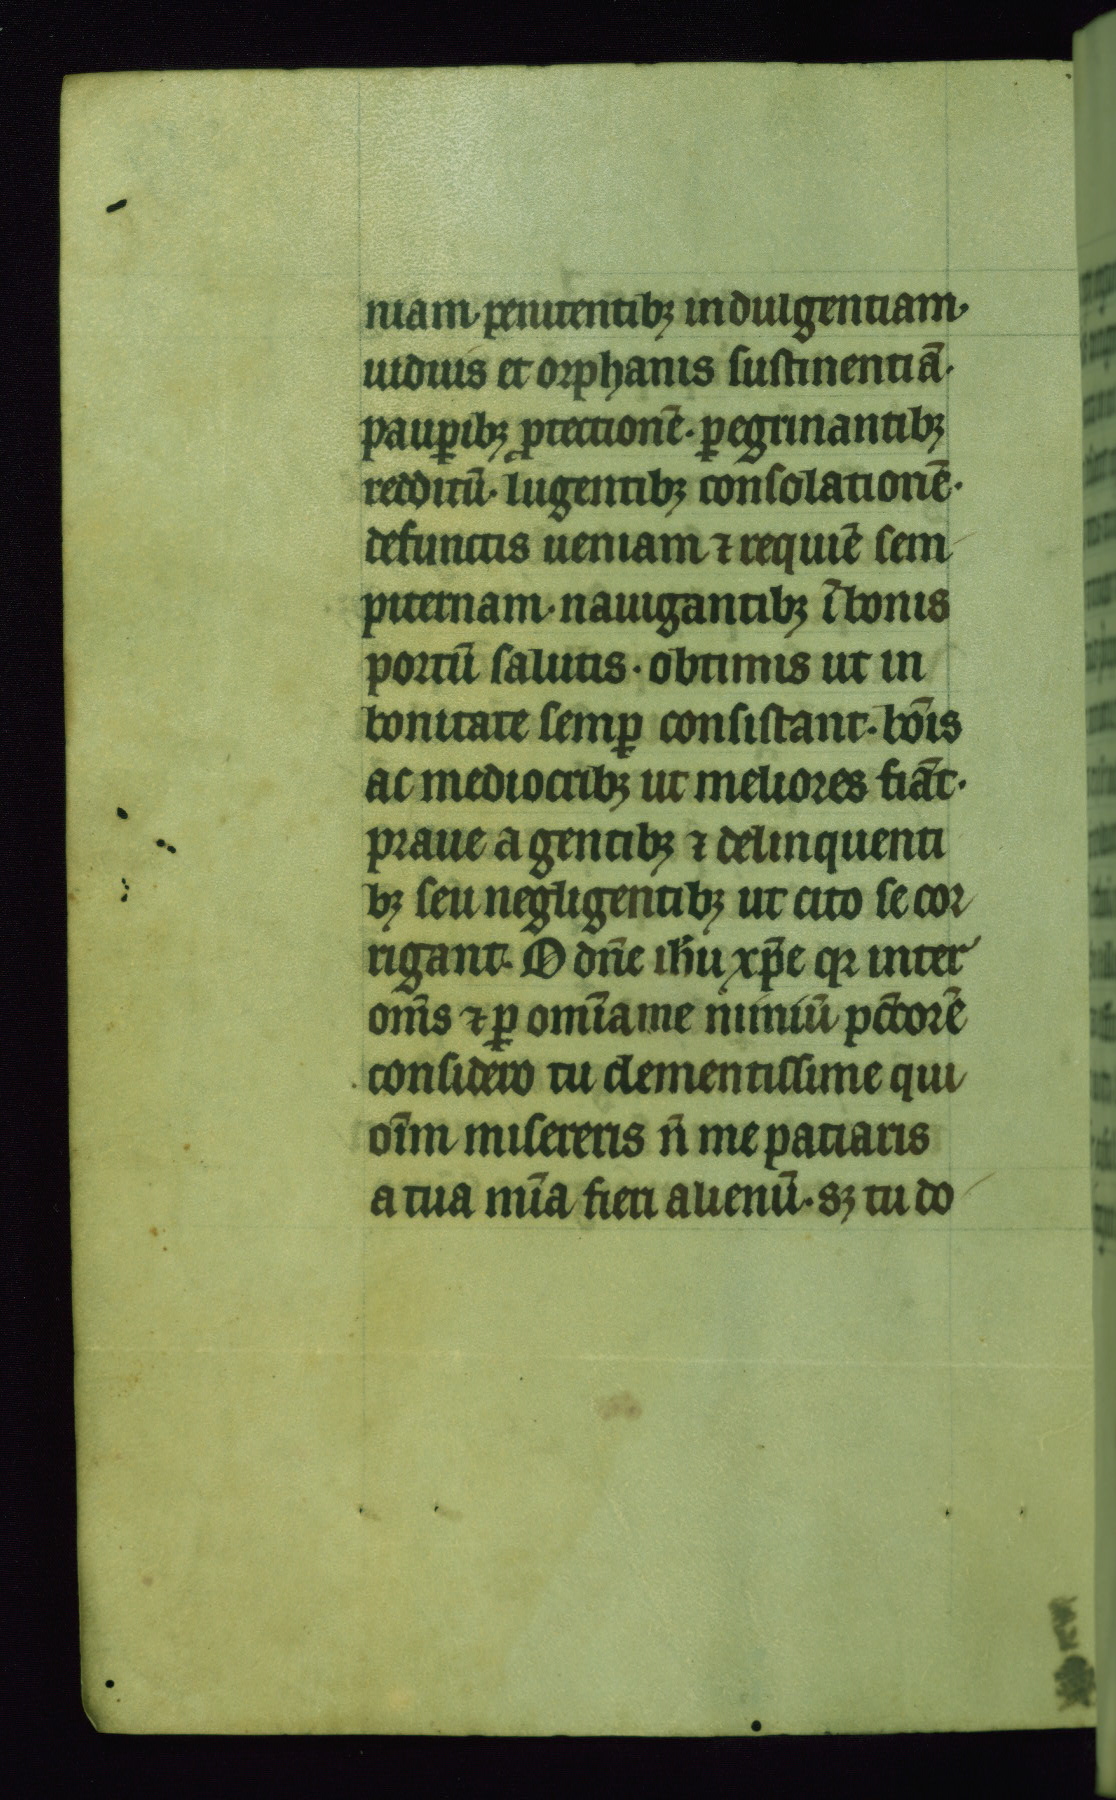 niam. penitentibꝫ indulgentiam.
uiduis et orphanis sustinentiā.
pauꝑibꝫ ꝓtectionē. ꝑegrinantibꝫ
redditū. lugentibꝫ consolationē.
defunctis ueniam ⁊ requiē sem
piternam. nauigantibꝫ ī bonis
portū salutis. obtimis ut in
bonitate semꝑ consistant. bōis
ac mediocribꝫ ut meliores fiāt.
praue agentibꝫ ⁊ delinquenti
bꝫ seu negligentibꝫ ut cito se cor
rigant. O dn̄e ih̄u xp̄e qꝛ inter
om̄s ⁊ ꝑ om̄ia me nimiū pc̄torē
considero tu clementissime qui
oīm misereris n̄ me patiaris
a tua mīa fieri alienū. sꝫ tu do